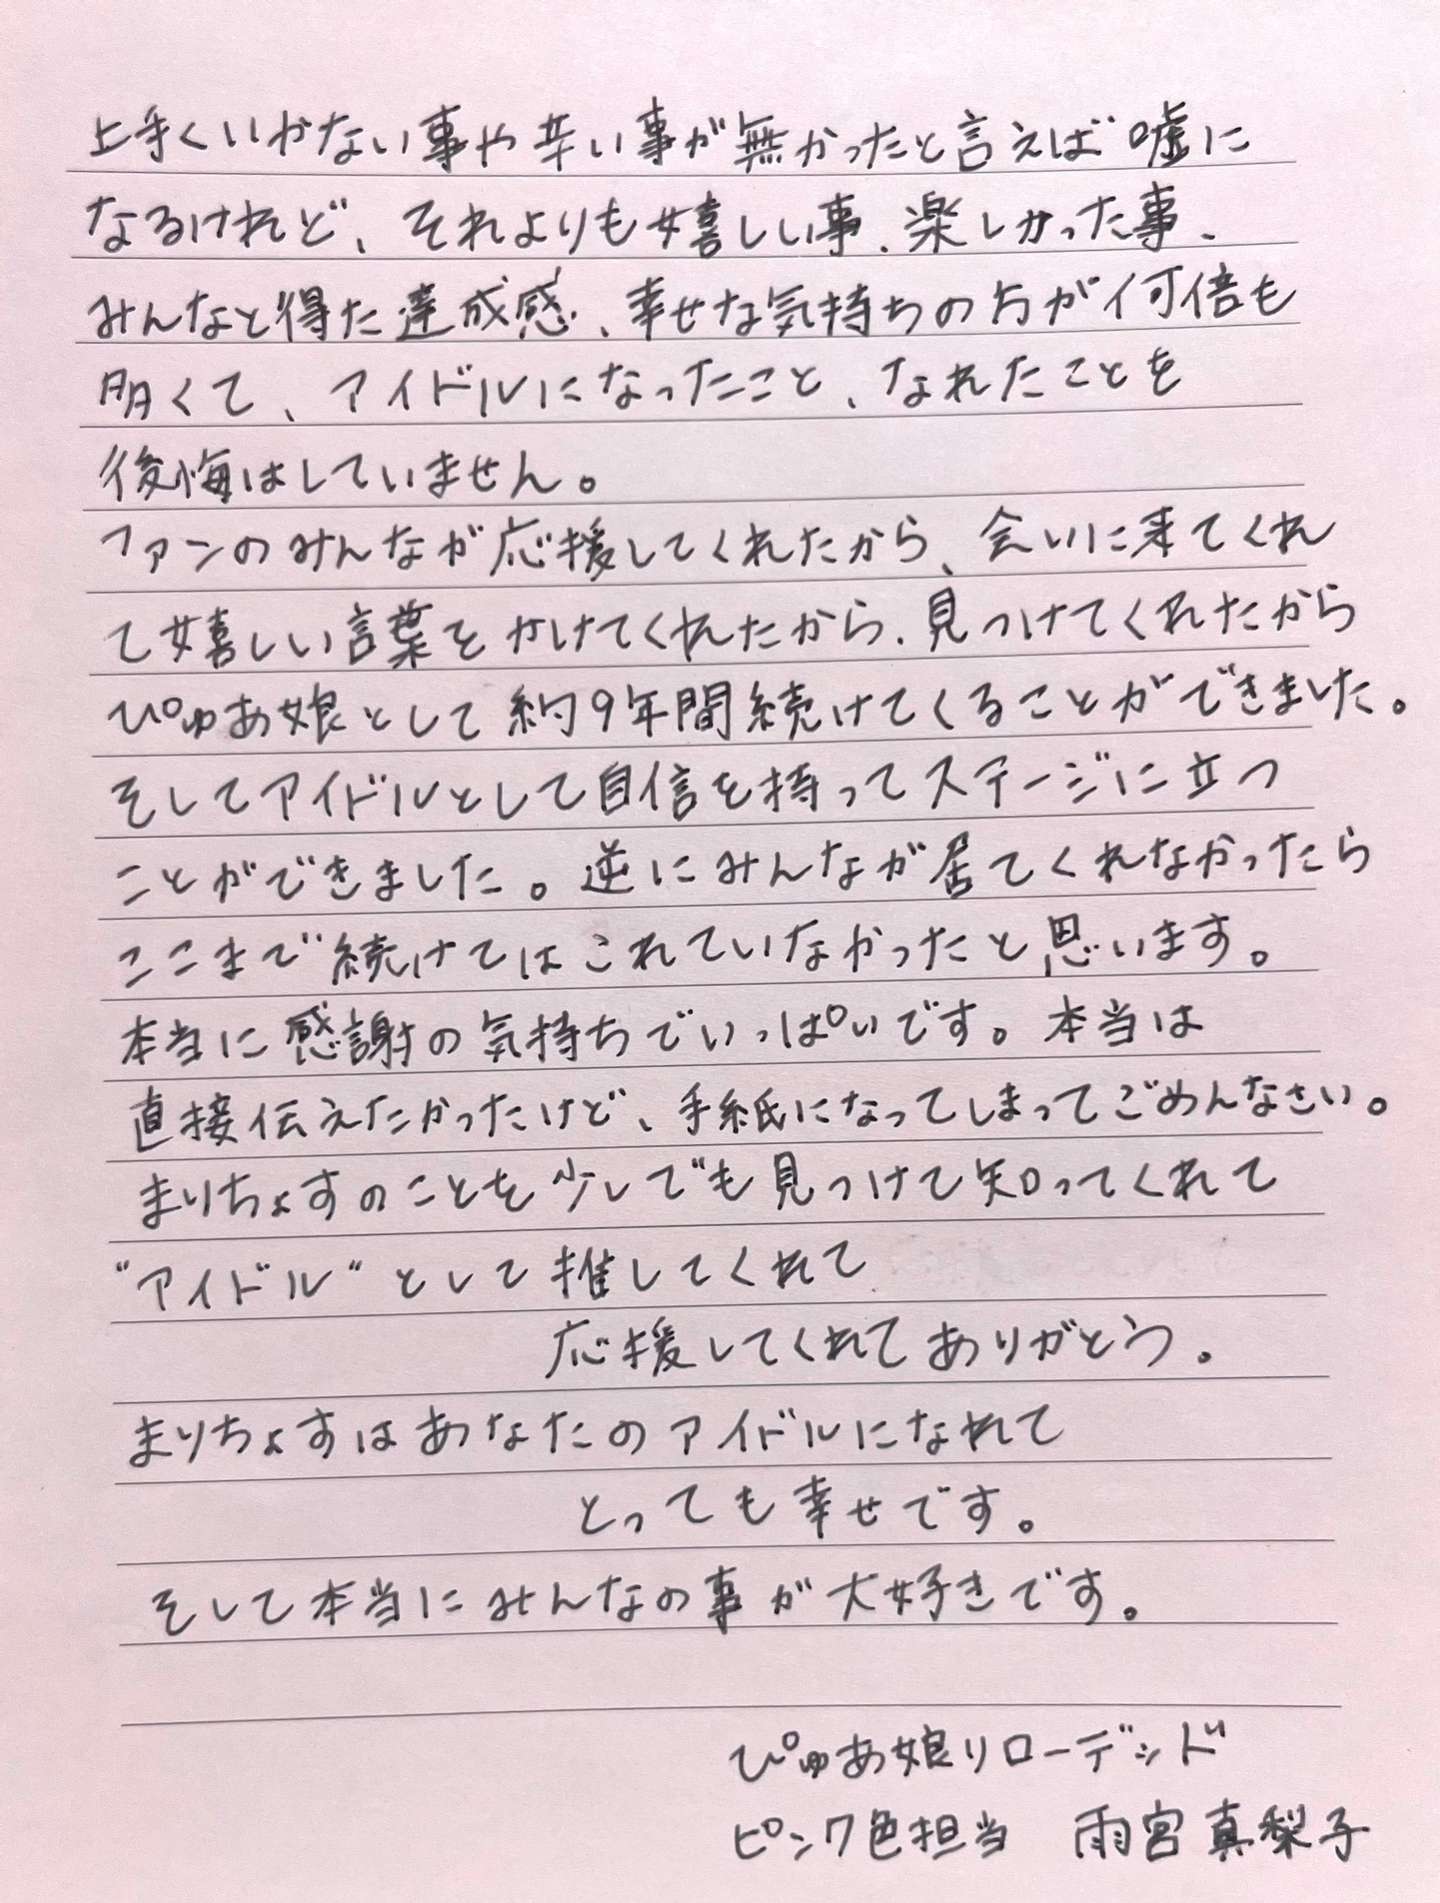 上手くいかない事や辛い事が無かったと言えば嘘に
なるけれど、それよりも嬉しい事、楽しかった事、
みんなと得た達成感、幸せな気持ちの方が何倍も
多くて、アイドルになったこと、なれたことを
後悔はしていません。
ファンのみんなが応援してくれたから、会いに来てくれ
て嬉しい言葉をかけてくれたから、見つけてくれたから
ぴゅあ娘として約9年間続けてくることができました。
そしてアイドルとして自信を持ってステージに立つ
ことができました。逆にみんなが居てくれなかったら
ここまで続けてはこれていなかったと思います。
本当に感謝の気持ちでいっぱいです。本当は
直接伝えたかったけど、手紙になってしまってごめんなさい。
まりちょすのことを少しでも見つけて知ってくれて
"アイドル"として推してくれて
応援してくれてありがとう。
まりちょすはあなたのアイドルになれて
とっても幸せです。
そして本当にみんなの事が大好きです。
ぴゅあ娘リローデッド
ピンク色担当 雨宮真梨子